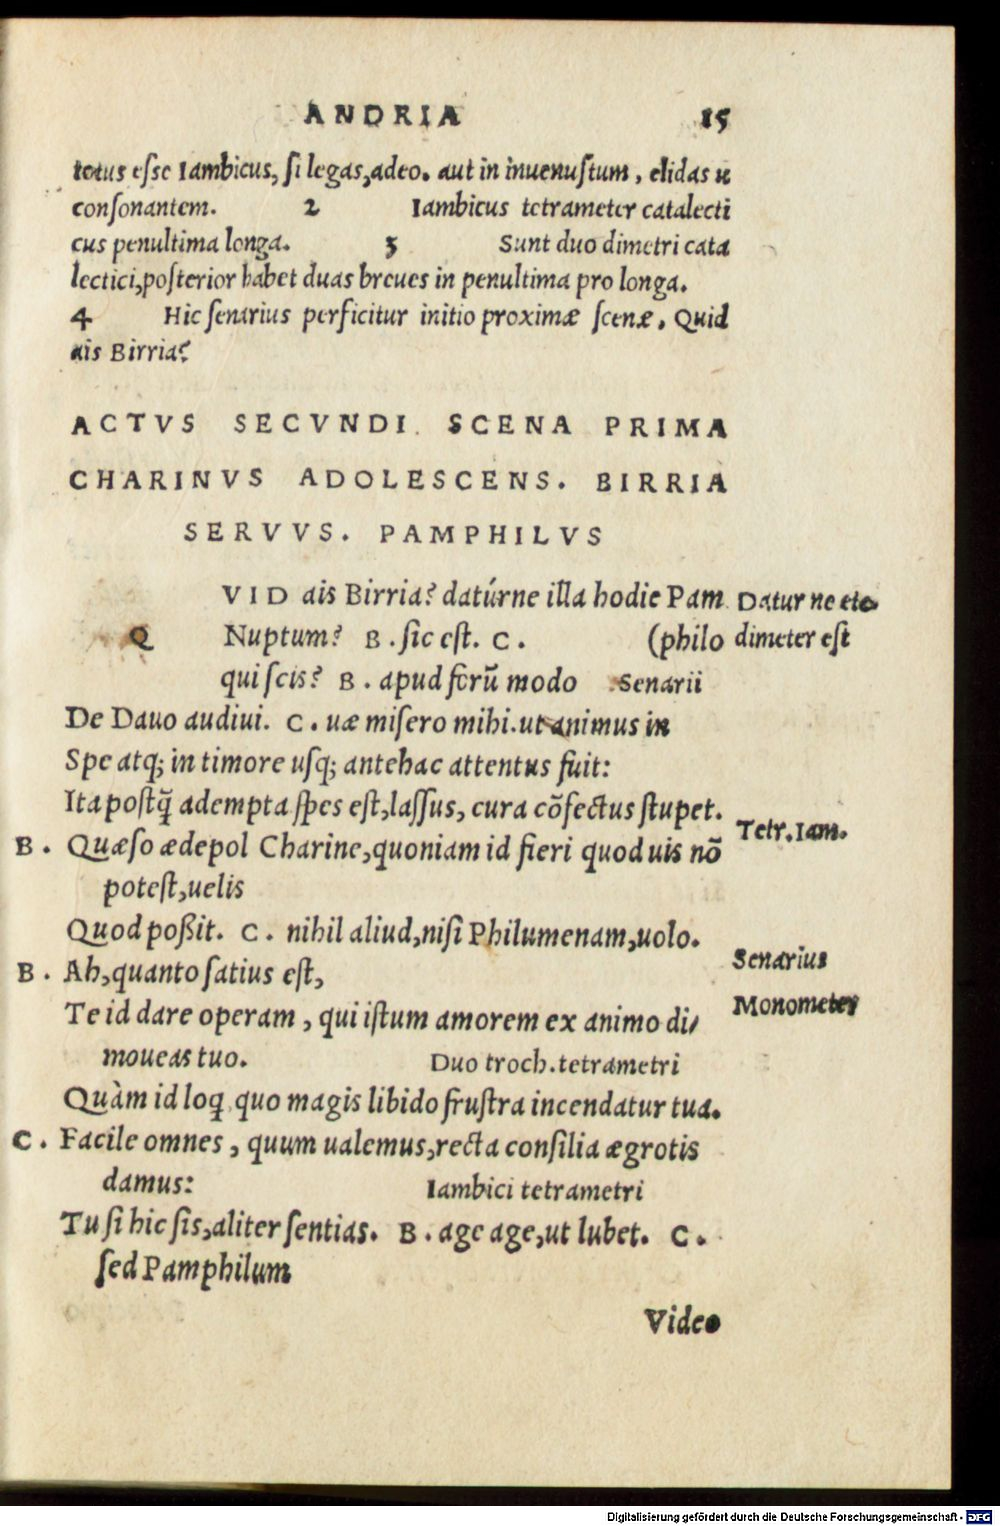 ANDRIA 15
totus esse Iambicus, si legas, adeo. aut in inuenustum, elidas u
consonantem. 2 Iambicus tetrameter catalecti
cus penultima longa. 3 Sunt duo dimetri cata
lectici, posterior habet duas breues in penultima pro longa.
4 Hic senarius perficitur initio proximæ scenæ, Quid
ais Birria?
ACTVS SECVNDI SCENA PRIMA
CHARINVS ADOLESCENS. BIRRIA
SERVVS. PAMPHILVS
QVID ais Birria? datúrne illa hodie Pam Datur ne etc.
Nuptum? B. sic est. C. (philo dimeter est
qui scis? B. apud forū modo Senarii
De Dauo audiui. C. uæ misero mihi. ut animus in
Spe atq; in timore usq; antehac attentus fuit:
Ita postq̄ adempta spes est, lassus, cura cōfectus stupet.
Tetr. Iam.
B. Quæso ædepol Charine, quoniam id fieri quod uis nō
potest, uelis
Quod poßit. C. nihil aliud, nisi Philumenam, uolo.
Senarius
B. Ah, quanto satius est,
Monometer
Te id dare operam, qui istum amorem ex animo di/
moueas tuo. Duo troch. tetrametri
Quàm id loq̄ quo magis libido frustra incendatur tua.
C. Facile omnes, quum ualemus, recta consilia ægrotis
damus: Iambici tetrametri
Tu si hic sis, aliter sentias. B. age age, ut lubet. C.
sed Pamphilum
Video
Digitalisierung gefördert durch die Deutsche Forschungsgemeinschaft - DFG